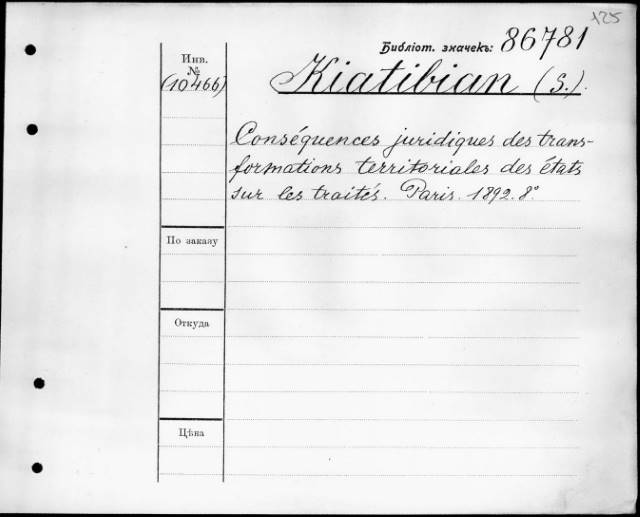 125
Библiот. значекъ: 86781
Инв.
№
(10466)
Kiatibian (S.).
Conséquences juridiques des trans-
formations territoriales des états
sur les traités. Paris. 1892. 8°.
По заказу
Откуда
Цѣна